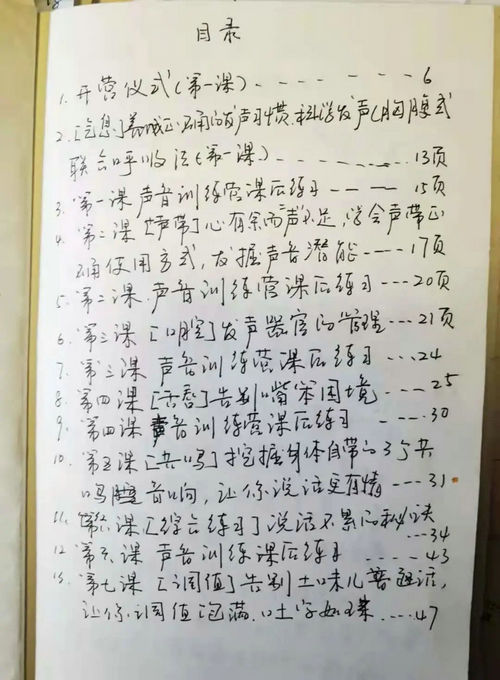 目录
1. 开营仪式(第一课)------- 6
2. [气息]养成正确的发声习惯.科学发声(胸腹式
联合呼吸法(第一课)------- 13页
3. 第一课声音训练营课后练习 --- 15页
4. 第二课[声带]心有余而声不足,学会声带正
确使用方式,发掘声音潜能---- 17页
5. 第二课.声音训练营课后练习---20页
6. 第三课[口腔]发声器官的管理---21页
7. 第三课 声音训练营课后练习...24
8. 第四课[舌唇]告别嘴笨困境....25
9. 第四课声音训练营课后练习 ....30
10. 第五课[共鸣]挖掘身体自带的3个共
鸣腔音响,让你说话更有情---31
11. 第六课[综合练习]说话不累的秘诀
----34
12. 第六课 声音训练课后练习 ---- 43
13. 第七课[调值]告别土味儿普通话,
让你调值饱满.吐字如珠....47